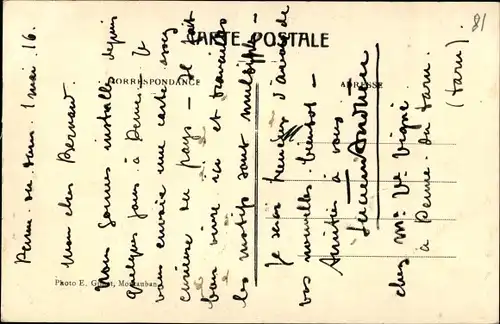 CARTE POSTALE
CORRESPONDANCE
ADRESSE
81
Penne. du tarn. 1 mai 16.
Mon cher Bernard.
Nous sommes installés depuis
quelques jours à Penne - Je
vous envoie une carte assez
curieuse du pays - Il fait
bon vivre ici et travailler
les motifs sont multiples -
Je serai heureux d'avoir de
vos nouvelles bientôt -
Amitiés à vous
Lucien
chez Mr Ve Vigné
à Penne. du tarn.
(tarn).
Photo E. Montauban